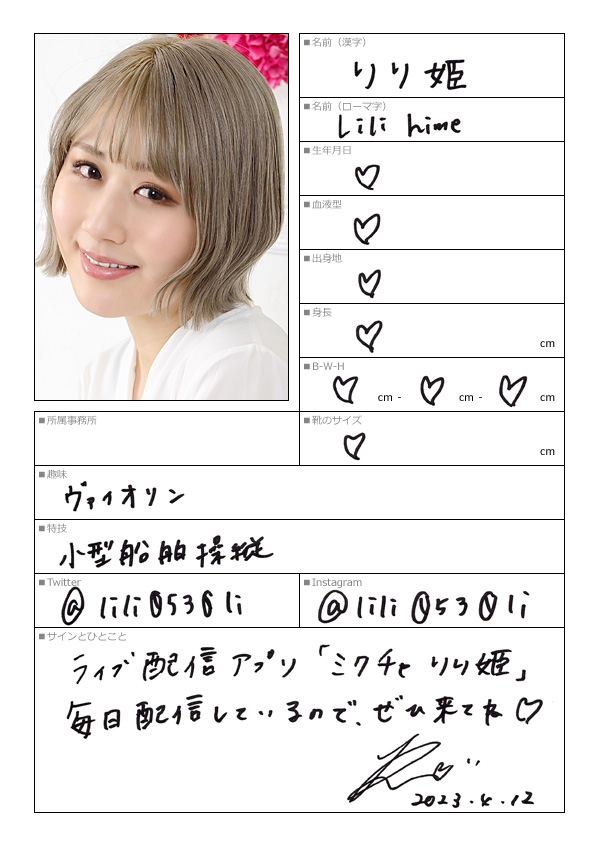 ■名前（漢字）
りり姫
■名前（ローマ字）
Lili hime
■生年月日
♡
■血液型
♡
■出身地
♡
■身長
♡ cm
■B-W-H
♡ cm - ♡ cm - ♡ cm
■所属事務所
■靴のサイズ
♡ cm
■趣味
ヴァイオリン
■特技
小型船舶操縦
■Twitter
@lili0530li
■Instagram
@lili0530li
■サインとひとこと
ライブ配信アプリ「ミクチャ りり姫」
毎日配信しているので、ぜひ来てね♡
2023.4.12